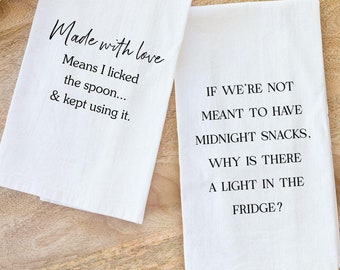 Made with love
Means I licked
the spoon...
& kept using it.
IF WE'RE NOT
MEANT TO HAVE
MIDNIGHT SNACKS,
WHY IS THERE
A LIGHT IN THE
FRIDGE?